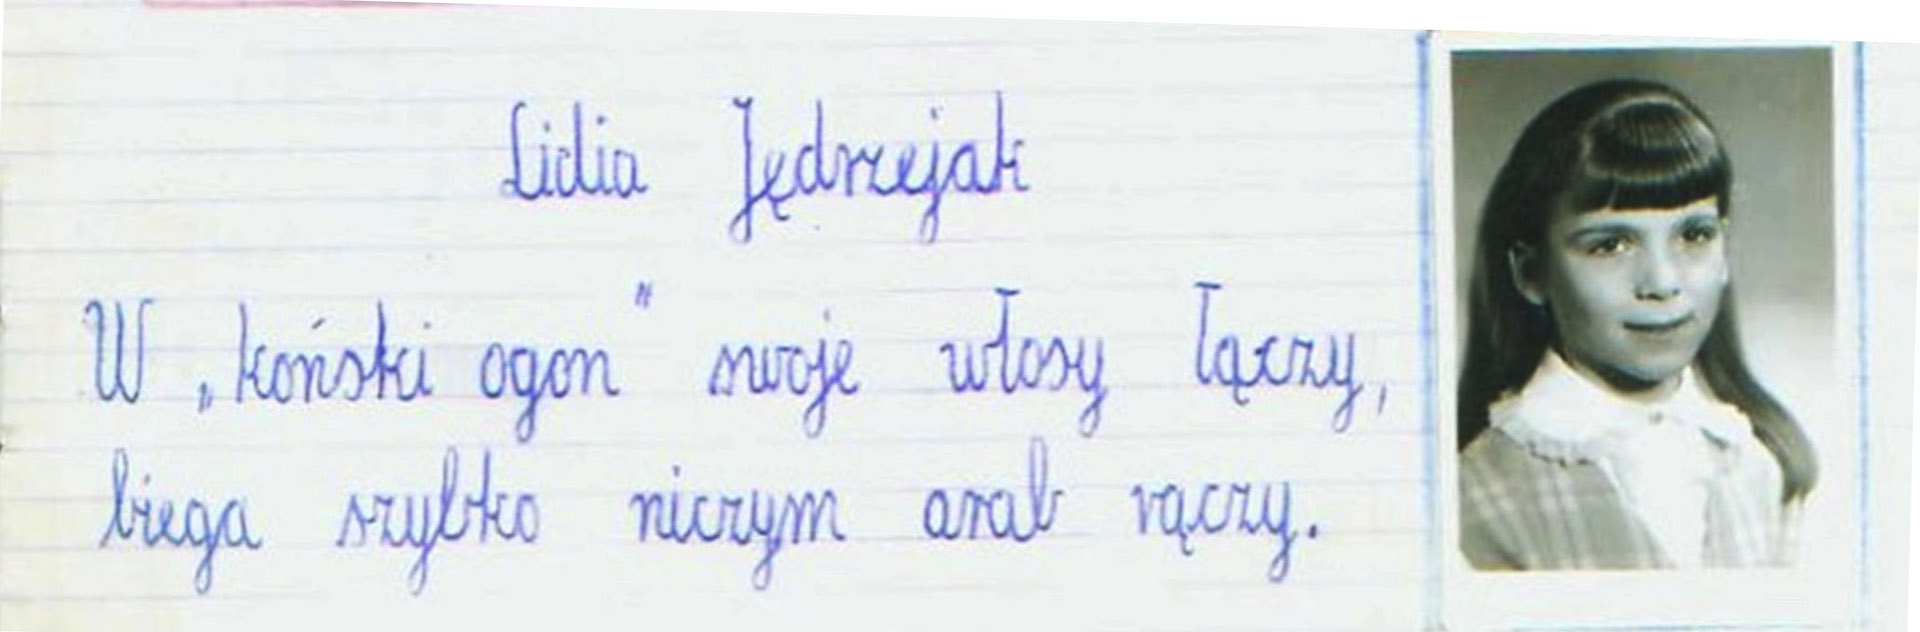 Lidia Jędrzejak
W „koński ogon" swoje włosy łączy,
biega szybko niczym arab rączy.